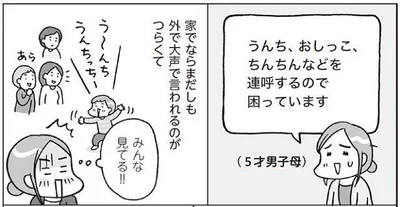 うんち、おしっこ、
ちんちんなどを
連呼するので
困っています
(5才男子母)
家でならまだしも
外で大声で言われるのが
つらくて
う〜んち
うんちっちー
あら
みんな
見てる!!